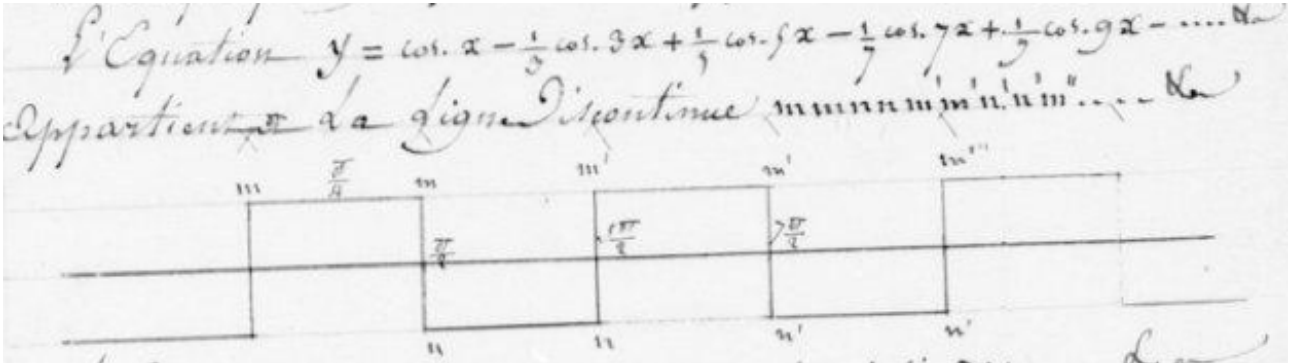 L'Equation y = cos. x - 1/3 cos. 3x + 1/5 cos. 5x - 1/7 cos. 7x + 1/9 cos. 9x - .... &
Appartient a La Ligne Discontinue mmnnm'm'n'n'm''.... &
m π/4 m m' m' m'''
π/2 π/2 7π/2
n n n' n'